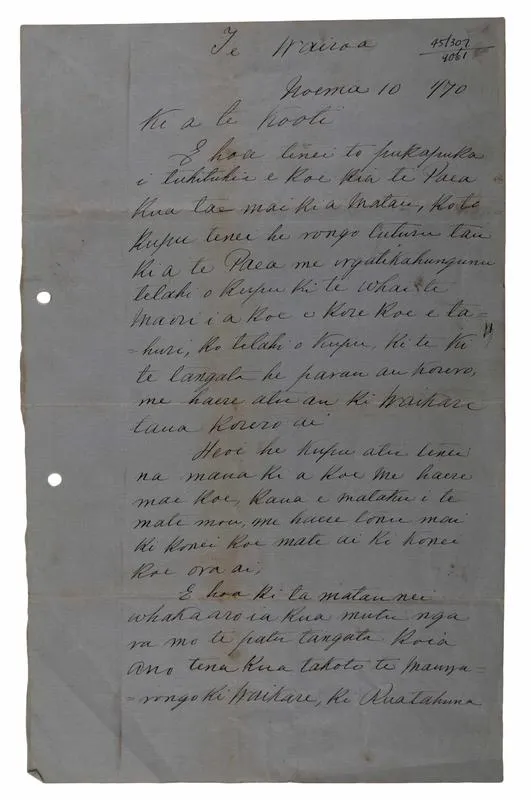 Te Wairoa
45/307
4061
Noema 10 /70
Ki a te Kooti
E hoa tenei to pukapuka
i tuhituhia e koe kia te Paea
kua tae mai ki a matau, ko to
kupu tenei he rongo tuturu tau
ki a te Paea me ngatikahungunu
tetahi o kupu ki te whai te
Maori i a koe e kore koe e ta-
=huri, ko tetahi o kupu, ki te ki
te tangata he parau au korero,
me haere atu au ki Waikare
taua korero ai
Heoi he kupu atu tenei
na maua ki a koe me haere
mai koe, kaua e mataku i te
mate mou, me haere tonu mai
ki konei koe mate ai ki konei
koe ora ai,
E hoa ki ta matau nei
whakaaro ia kua mutu nga
ra mo te patu tangata koia
ano tena kua takoto te Maunga-
-rongo ki Waikare, ki Ruatahuna